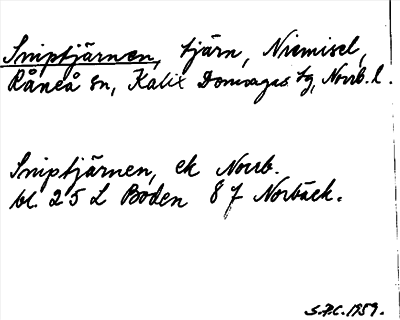 Sniptjärnen, tjärn, Niemisel,
Råneå sn, Kalix Domsagas tg, Norrb. l.
Sniptjärnen, ek Norrb.
bl. 25 L Boden 8 f Norbäck.
S.P.C. 1959.